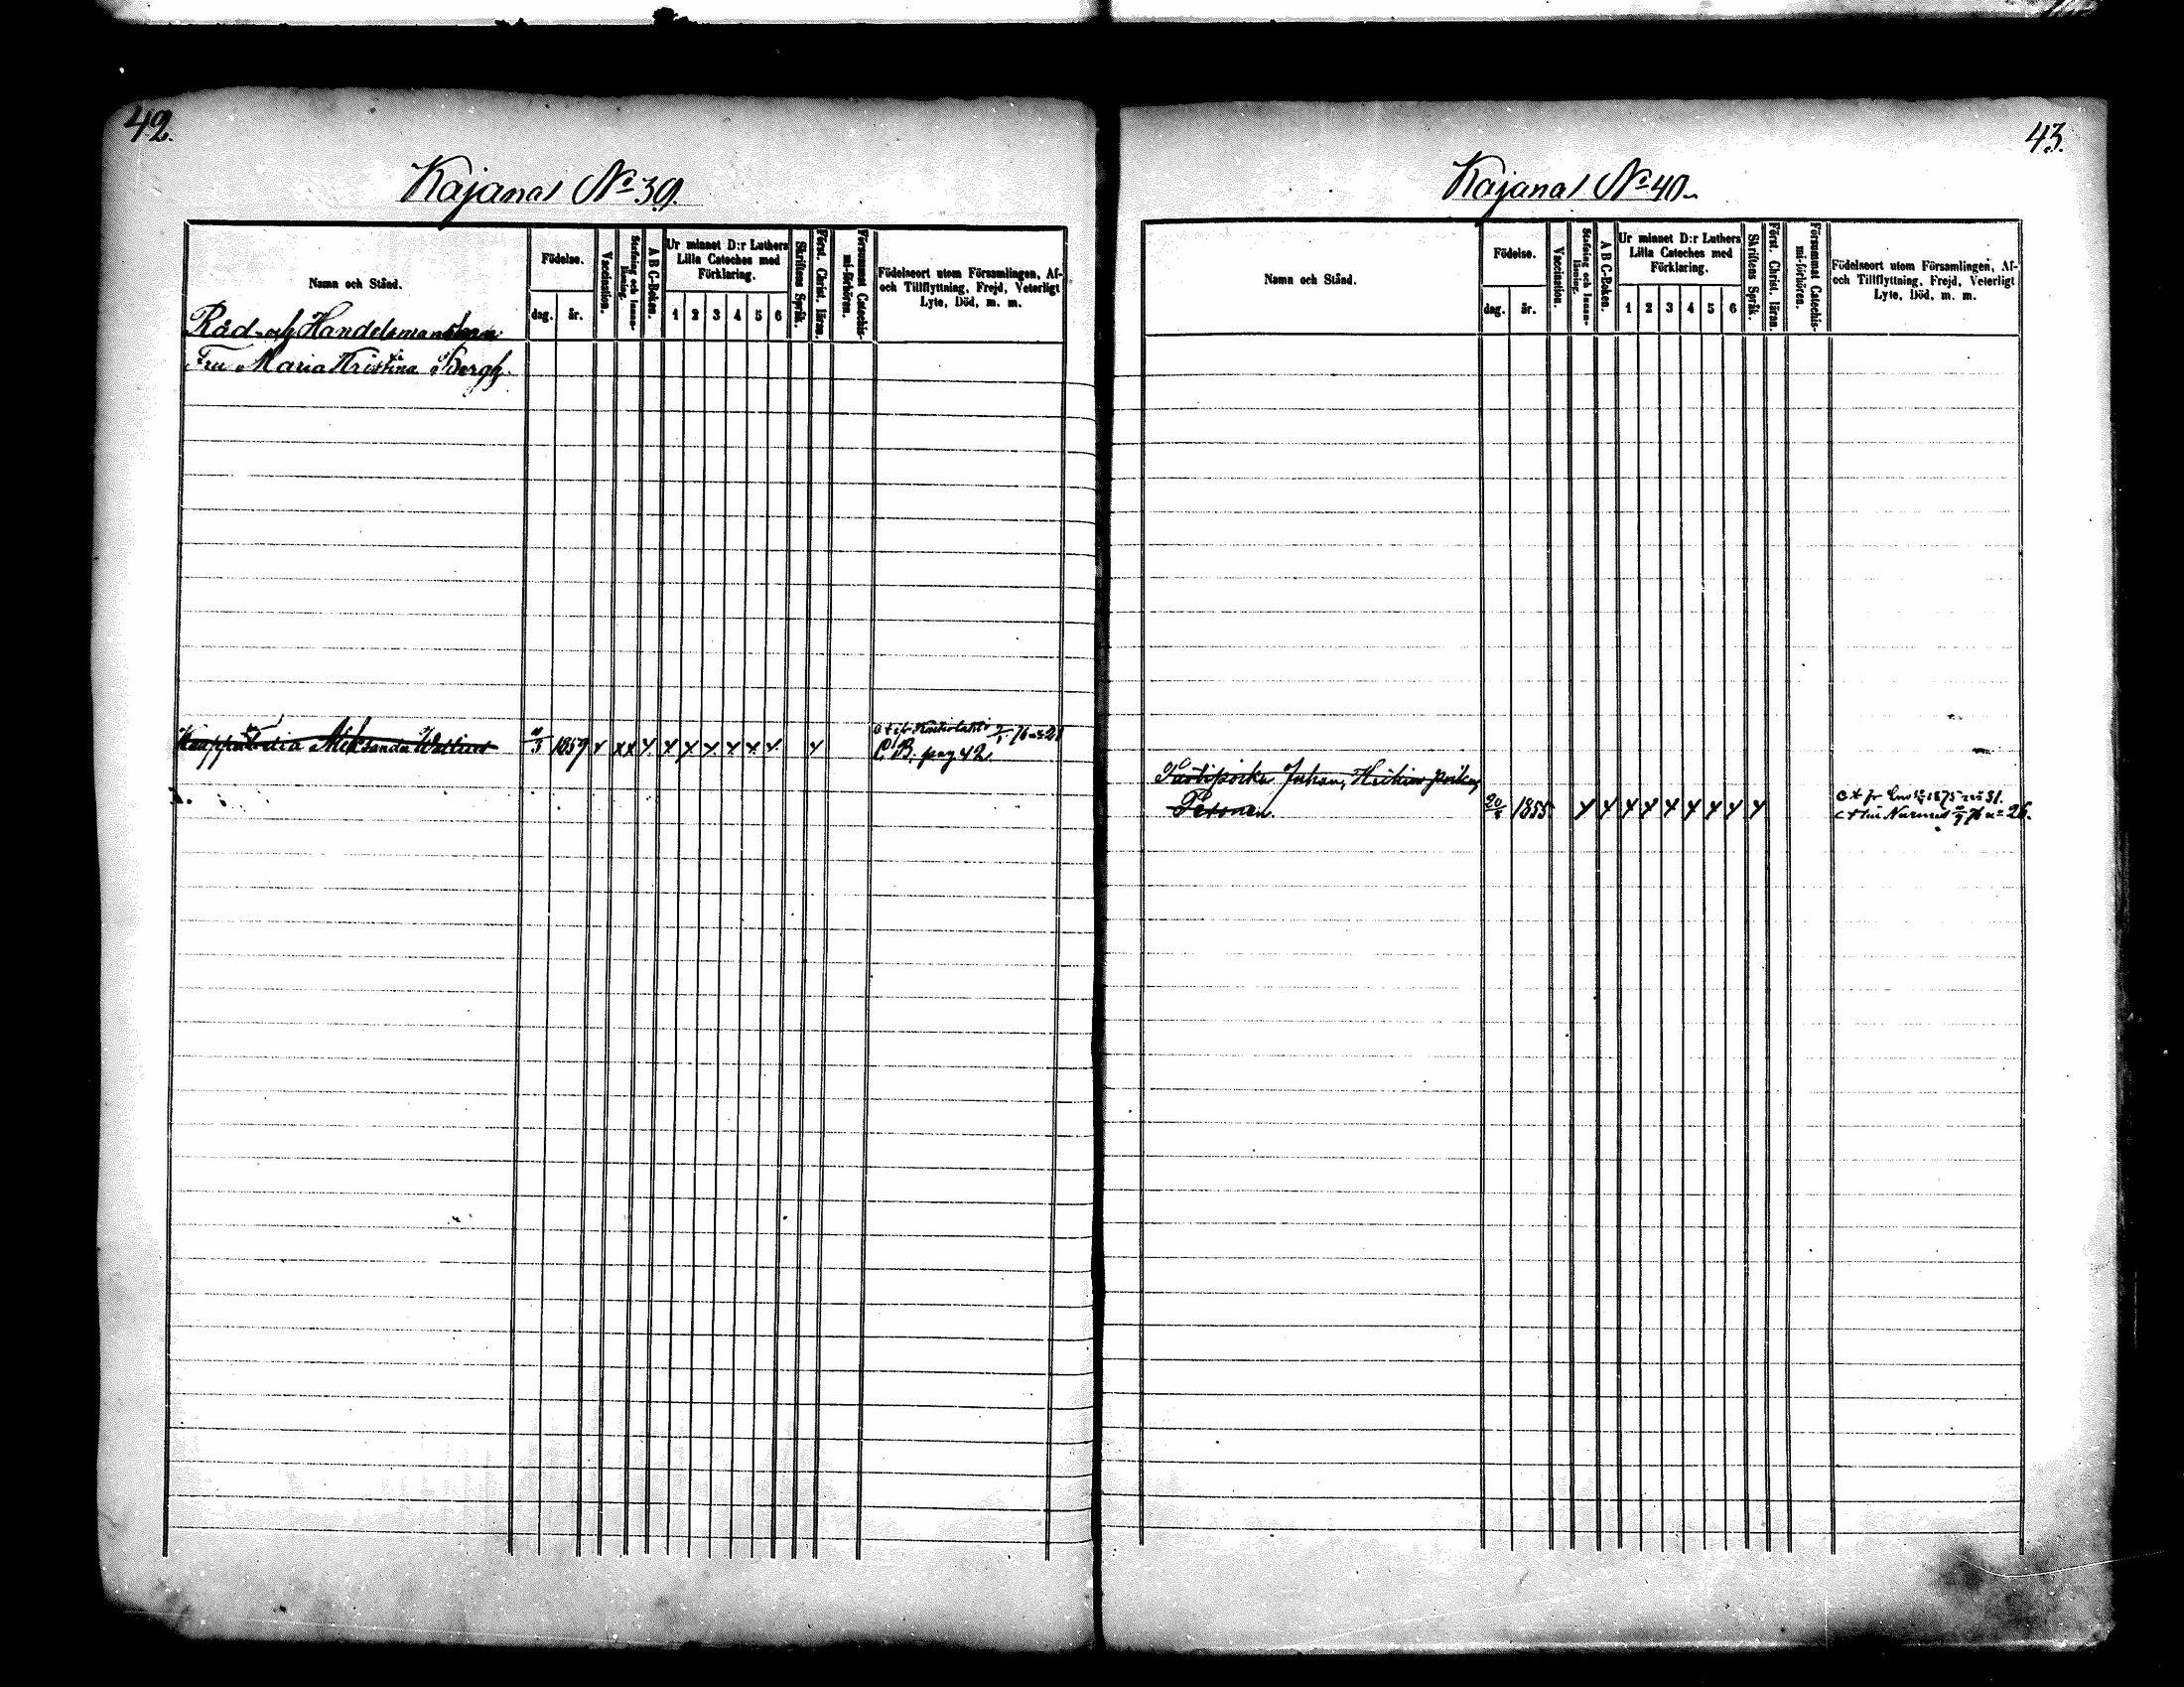 42.
Kajana / No 39.
Namn och Stånd.
Födelse.
dag.
år.
Vaccination.
Stafning och Innan-läsning.
A B C-Boken.
Ur minnet D:r Luthers
Lilla Cateches med
Förklaring.
1 2 3 4 5 6
Skriftens Språk.
Först. Christ. läran.
Försummat Catechis-
mi-förhören.
Födelseort utom Församlingen, Af-
och Tillflyttning, Frejd, Veterligt
Lyte, Död, m. m.
Råd- och Handelsman
Fru Maria Kristina Bergh.
Aleksandra 1859 x x x x x x x x x x x
C. B. pag 42.
43.
Kajana / No 40.
Namn och Stånd.
Födelse.
dag.
år.
Vaccination.
Stafning och Innan-
läsning.
A B C-Boken.
Ur minnet D:r Luthers
Lilla Cateches med
Förklaring.
1 2 3 4 5 6
Skriftens Språk.
Först. Christ. läran.
Försummat Catechis-
mi-förhören.
Födelseort utom Församlingen, Af-
och Tillflyttning, Frejd, Veterligt
Lyte, Död, m. m.
Juhan, Heikin poika,
Pesonen. 1855 x x x x x x x x x